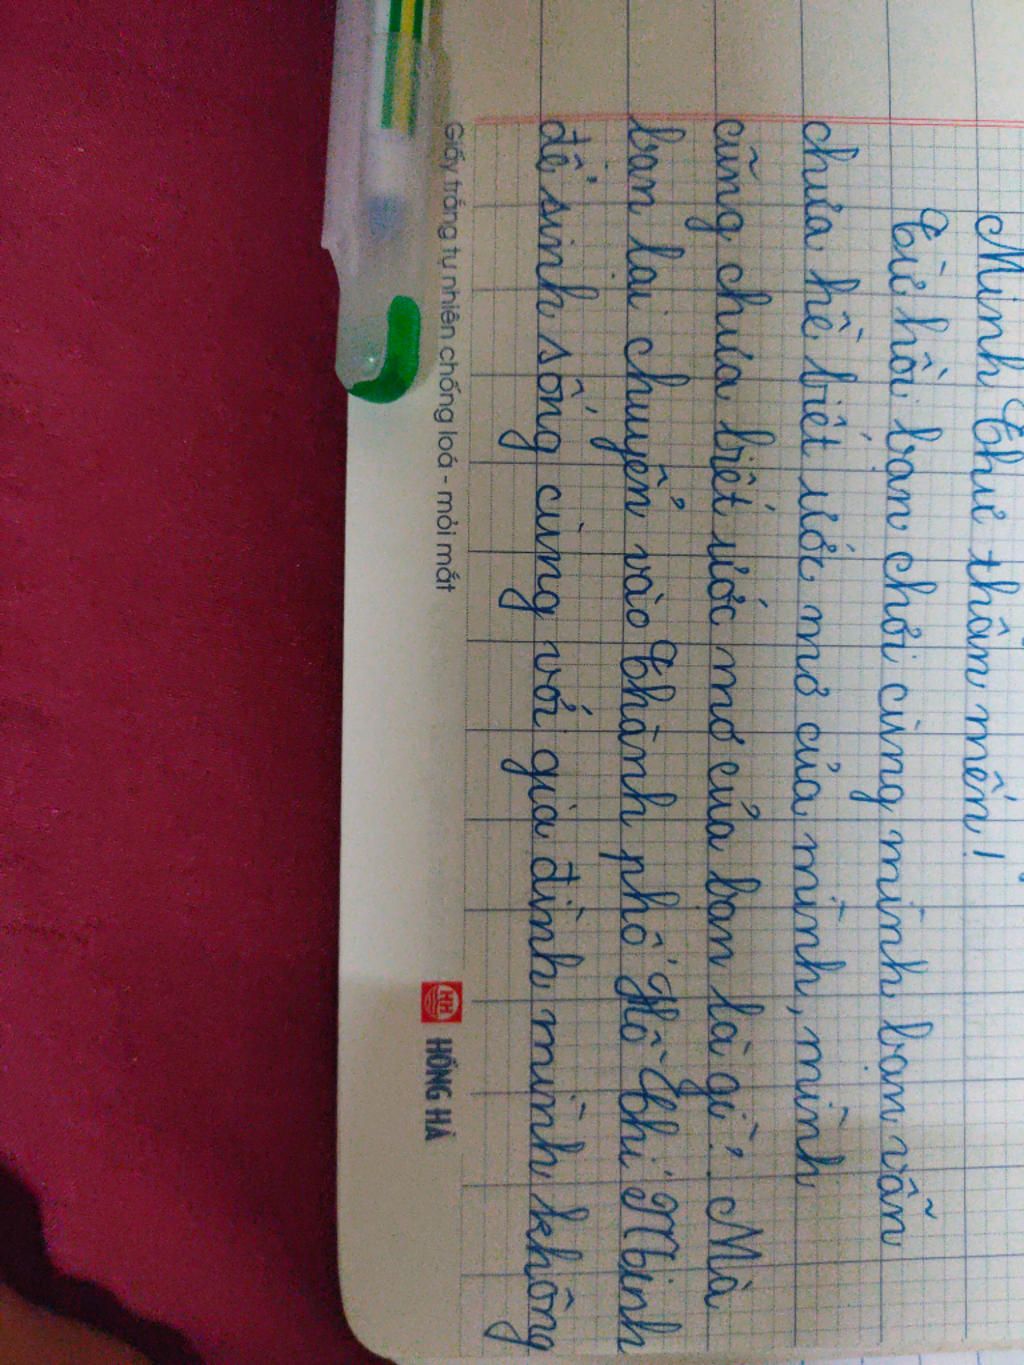 Minh Thư thân mến!
Từ hồi bạn chơi cùng mình bạn vẫn
chưa hề biết ước mơ của mình, mình
cũng chưa biết ước mơ của bạn là gì? Mà
bạn lại chuyển vào Thành phố Hồ Chí Minh
để sinh sống cùng với gia đình mình không
Giấy trắng tự nhiên chống loá - mỏi mắt
HH HỒNG HÀ